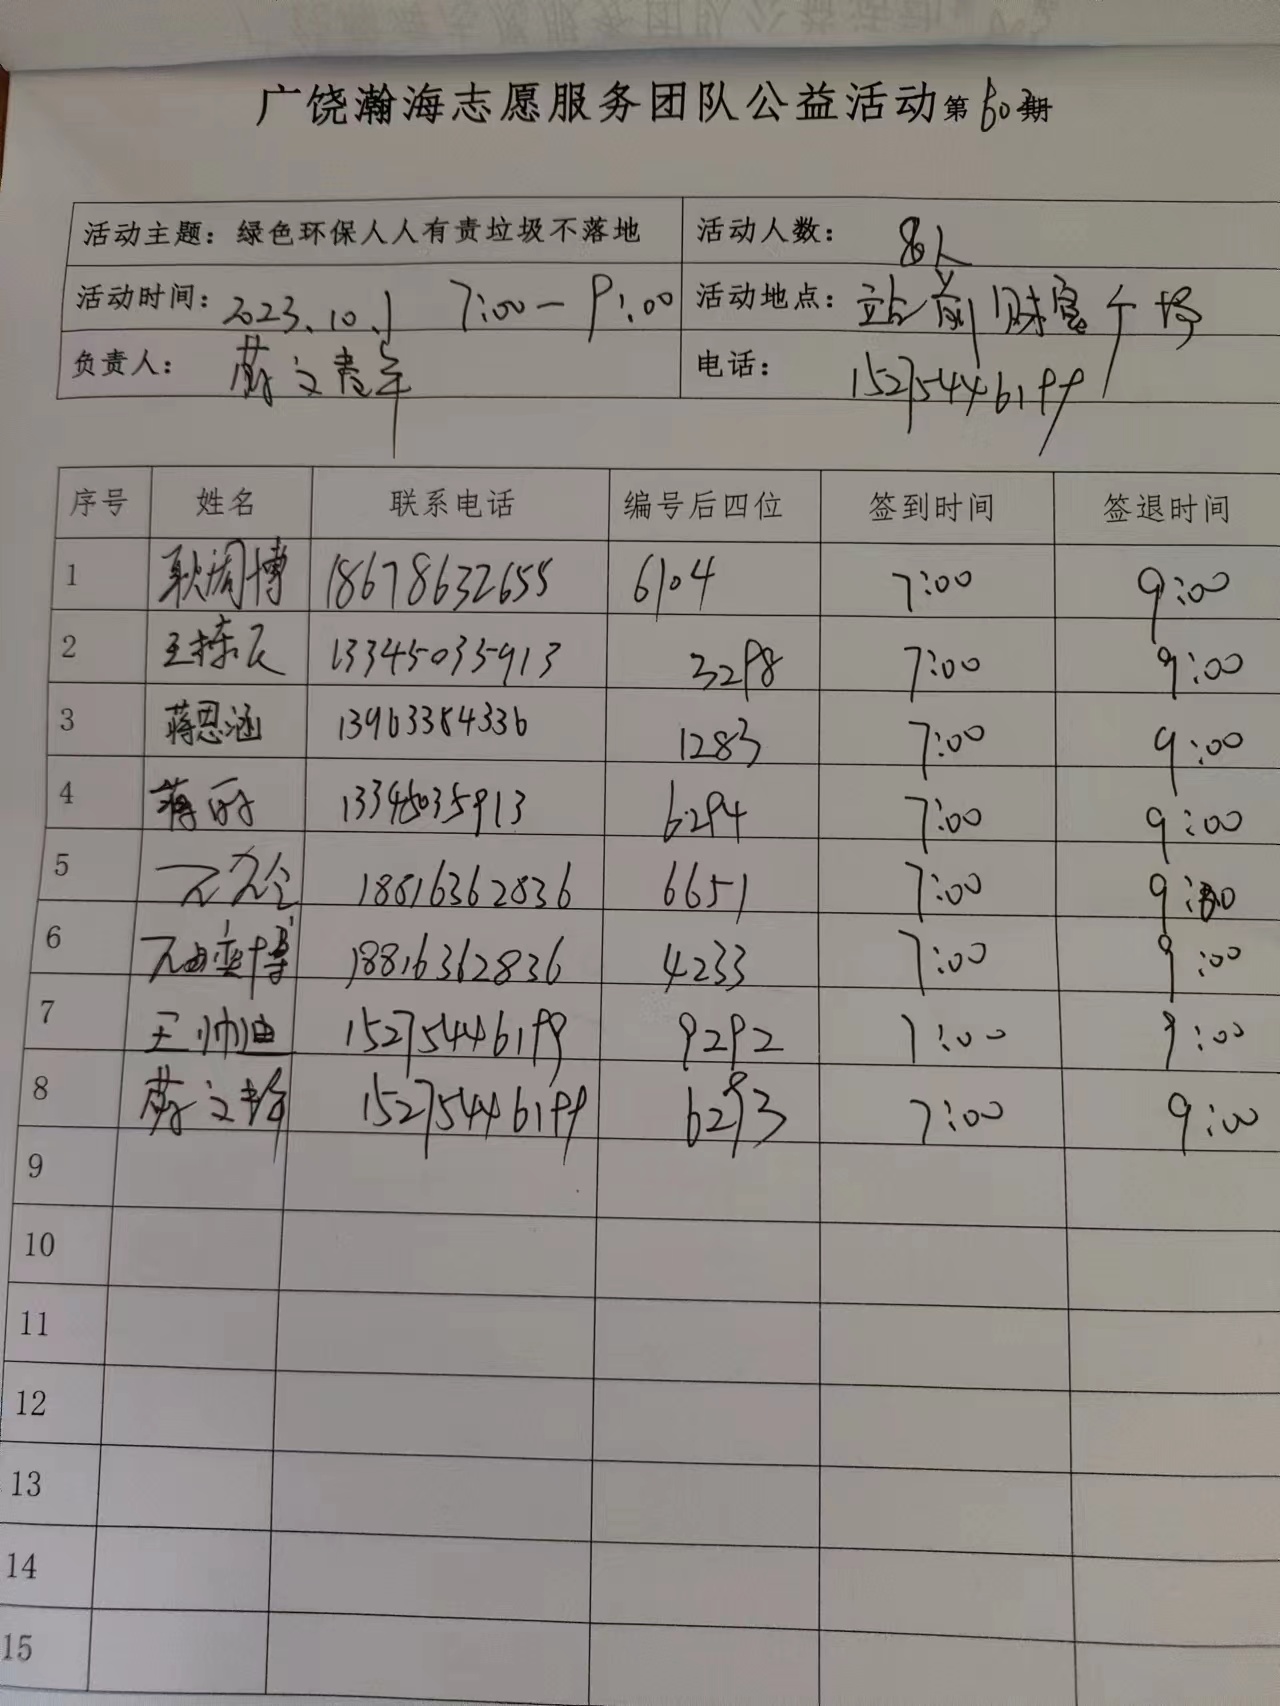 广饶瀚海志愿服务团队公益活动第60期
活动主题：绿色环保人人有责垃圾不落地 活动人数：8人
活动时间：2023.10.1 7:00—9:00 活动地点：站前财富广场
负责人： 电话：15275446199
序号 姓名 联系电话 编号后四位 签到时间 签退时间
1 耿周博 18678632655 6104 7:00 9:00
2 王栋辰 13345035913 3298 7:00 9:00
3 蒋恩涵 13963384336 1283 7:00 9:00
4 蒋丽 13345035913 6294 7:00 9:00
5 18816362836 6651 7:00 9:00
6 18816362836 4233 7:00 9:00
7 王帅迪 15275446199 9292 7:00 9:00
8 15275446199 6293 7:00 9:00
9
10
11
12
13
14
15